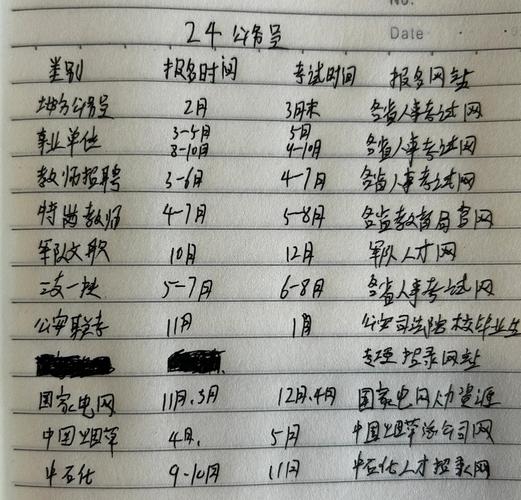 No.
24公务员
Date
类别 报名时间 考试时间 报名网站
地方公务员 2月 3月末 各省人事考试网
事业单位 3-5月 5月 各省人事考试网
8-10月 9-10月
教师招聘 3-6月 4-7月 各省人事考试网
特岗教师 4-7月 5-8月 各省教育局官网
军队文职 10月 12月 军队人才网
三支一扶 5-7月 6-8月 各省人事考试网
公安联考 11月 1月 公安司法院校毕业生
专理招录网站
国家电网 11月.3月 12月.4月 国家电网人力资源
中国烟草 4月. 5月 中国烟草各公司网
中石化 9-10月 11月 中石化人才招录网